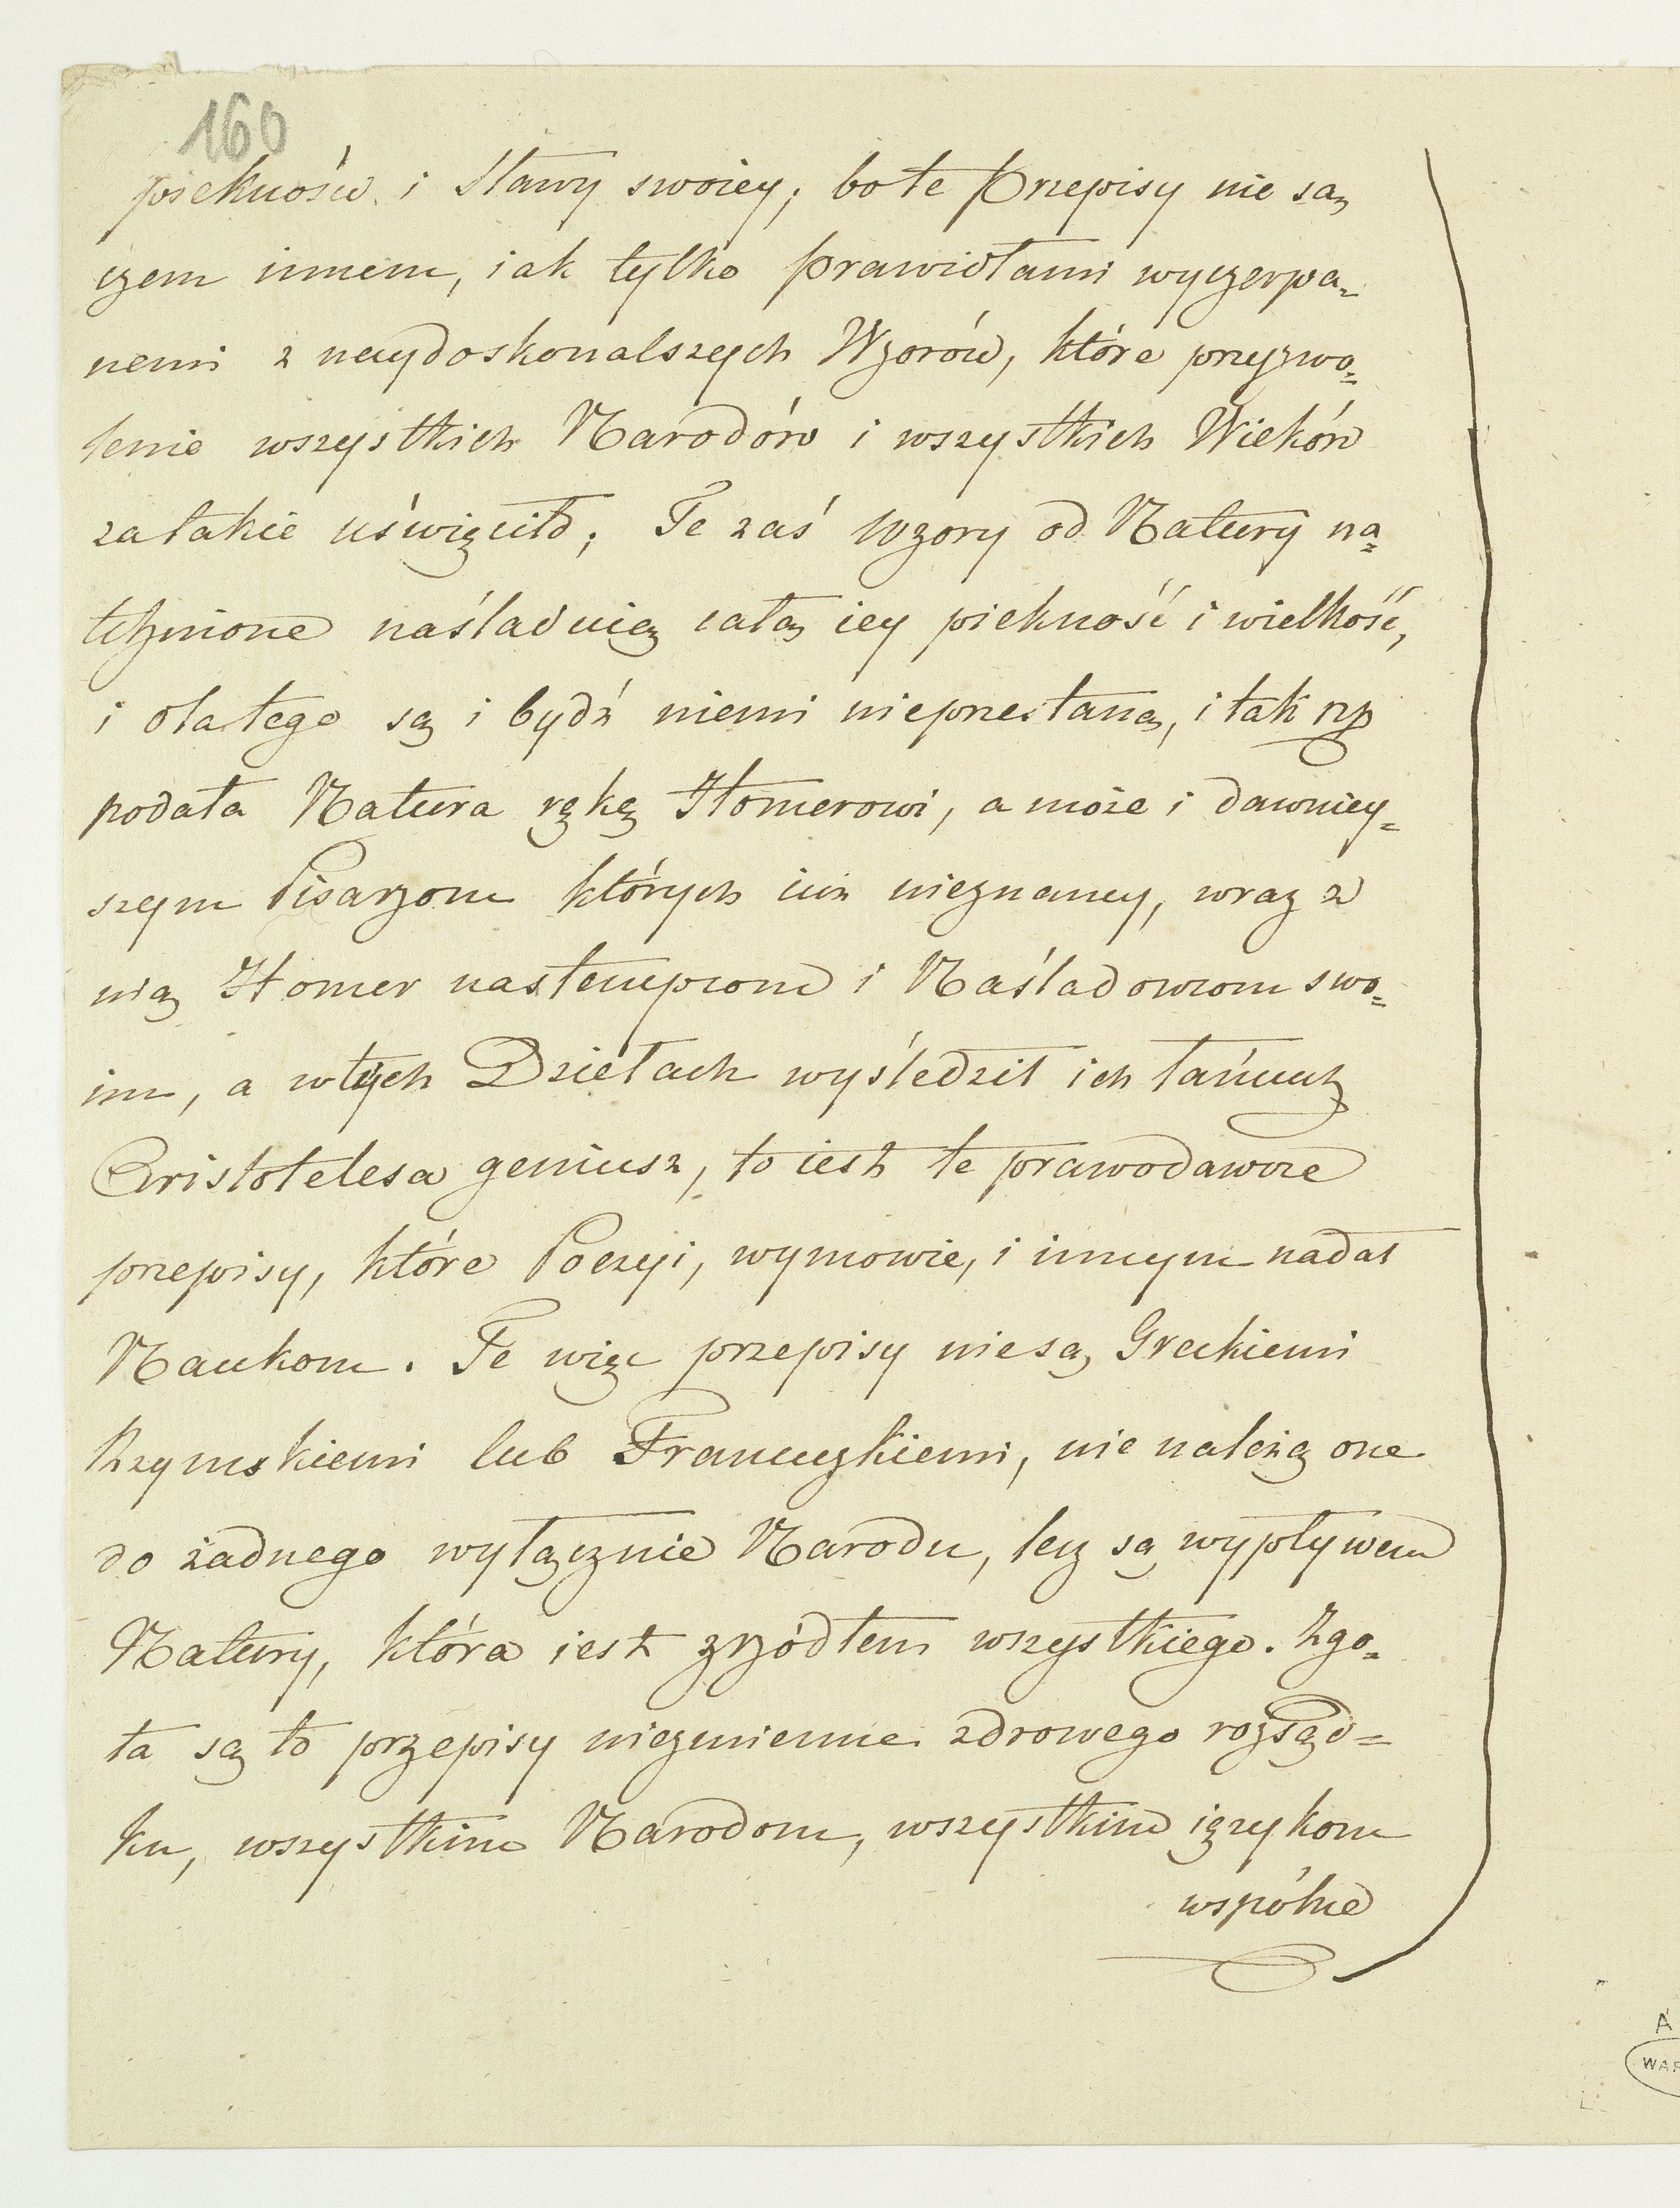 160
piekności i Sławy swoiey; bo te Przepisy nie są
czem innem, iak tylko prawidłami wyczerpa=
nemi z naydoskonalszych Wzorów, które przyzwo=
lenie wszystkich Narodów i wszystkich Wieków
zatakie uświęciło; Te zaś Wzory od Natury na=
tchnione naśladuią całą iey piekność i wielkość,
i dlatego są i bydź niemi nieprzestaną, i tak np
podała Natura rękę Homerowi, a może i dawniey=
szym Pisarzom których iuż nieznamy, wraz z
nią Homer nastempcom i Naśladowcom swo=
im, a wtych Dziełach wyśledził ich łańcuch
Aristotelesa geniusz, to iest te prawodawcze
przepisy, które Poezyi, wymowie, i innym nadał
Naukom. Te więc przepisy niesą Greckiemi
Rzymskiemi lub Francuzkiemi, nie należą one
do żadnego wyłącznie Narodu, lecz są wypływem
Natury, która iest zrzódłem wszystkiego. Zgo=
ła są to przepisy niezmienne zdrowego rozsąd=
ku, wszystkim Narodom, wszystkim ięzykom
wspólne
A
WAR